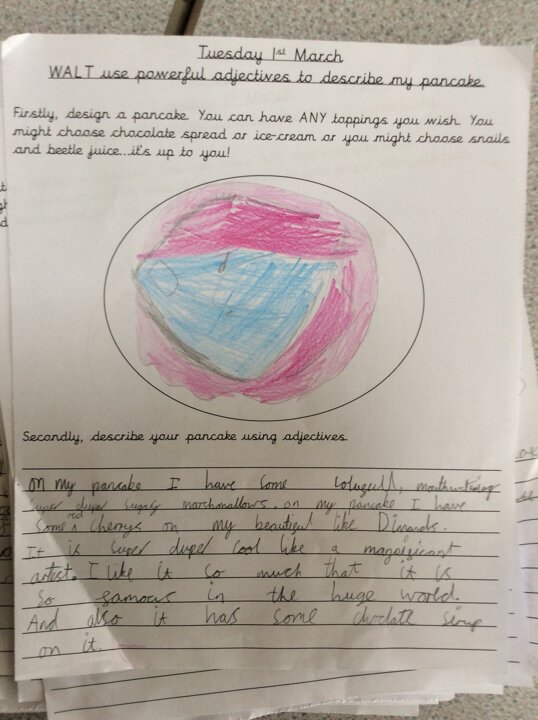 Tuesday 1st March
WALT use powerful adjectives to describe my pancake.
Firstly, design a pancake. You can have ANY toppings you wish. You
might choose chocolate spread or ice-cream or you might choose snails
and beetle juice...it's up to you!
Secondly, describe your pancake using adjectives.
on my pancake I have some
super duper sugary marshmallows. on my pancake I have
some red Cherrys on my beautiful like
It is super duper cool like a
artest. I like it so much that it is
So famous in the huge world.
And also it has some sirup
on it.